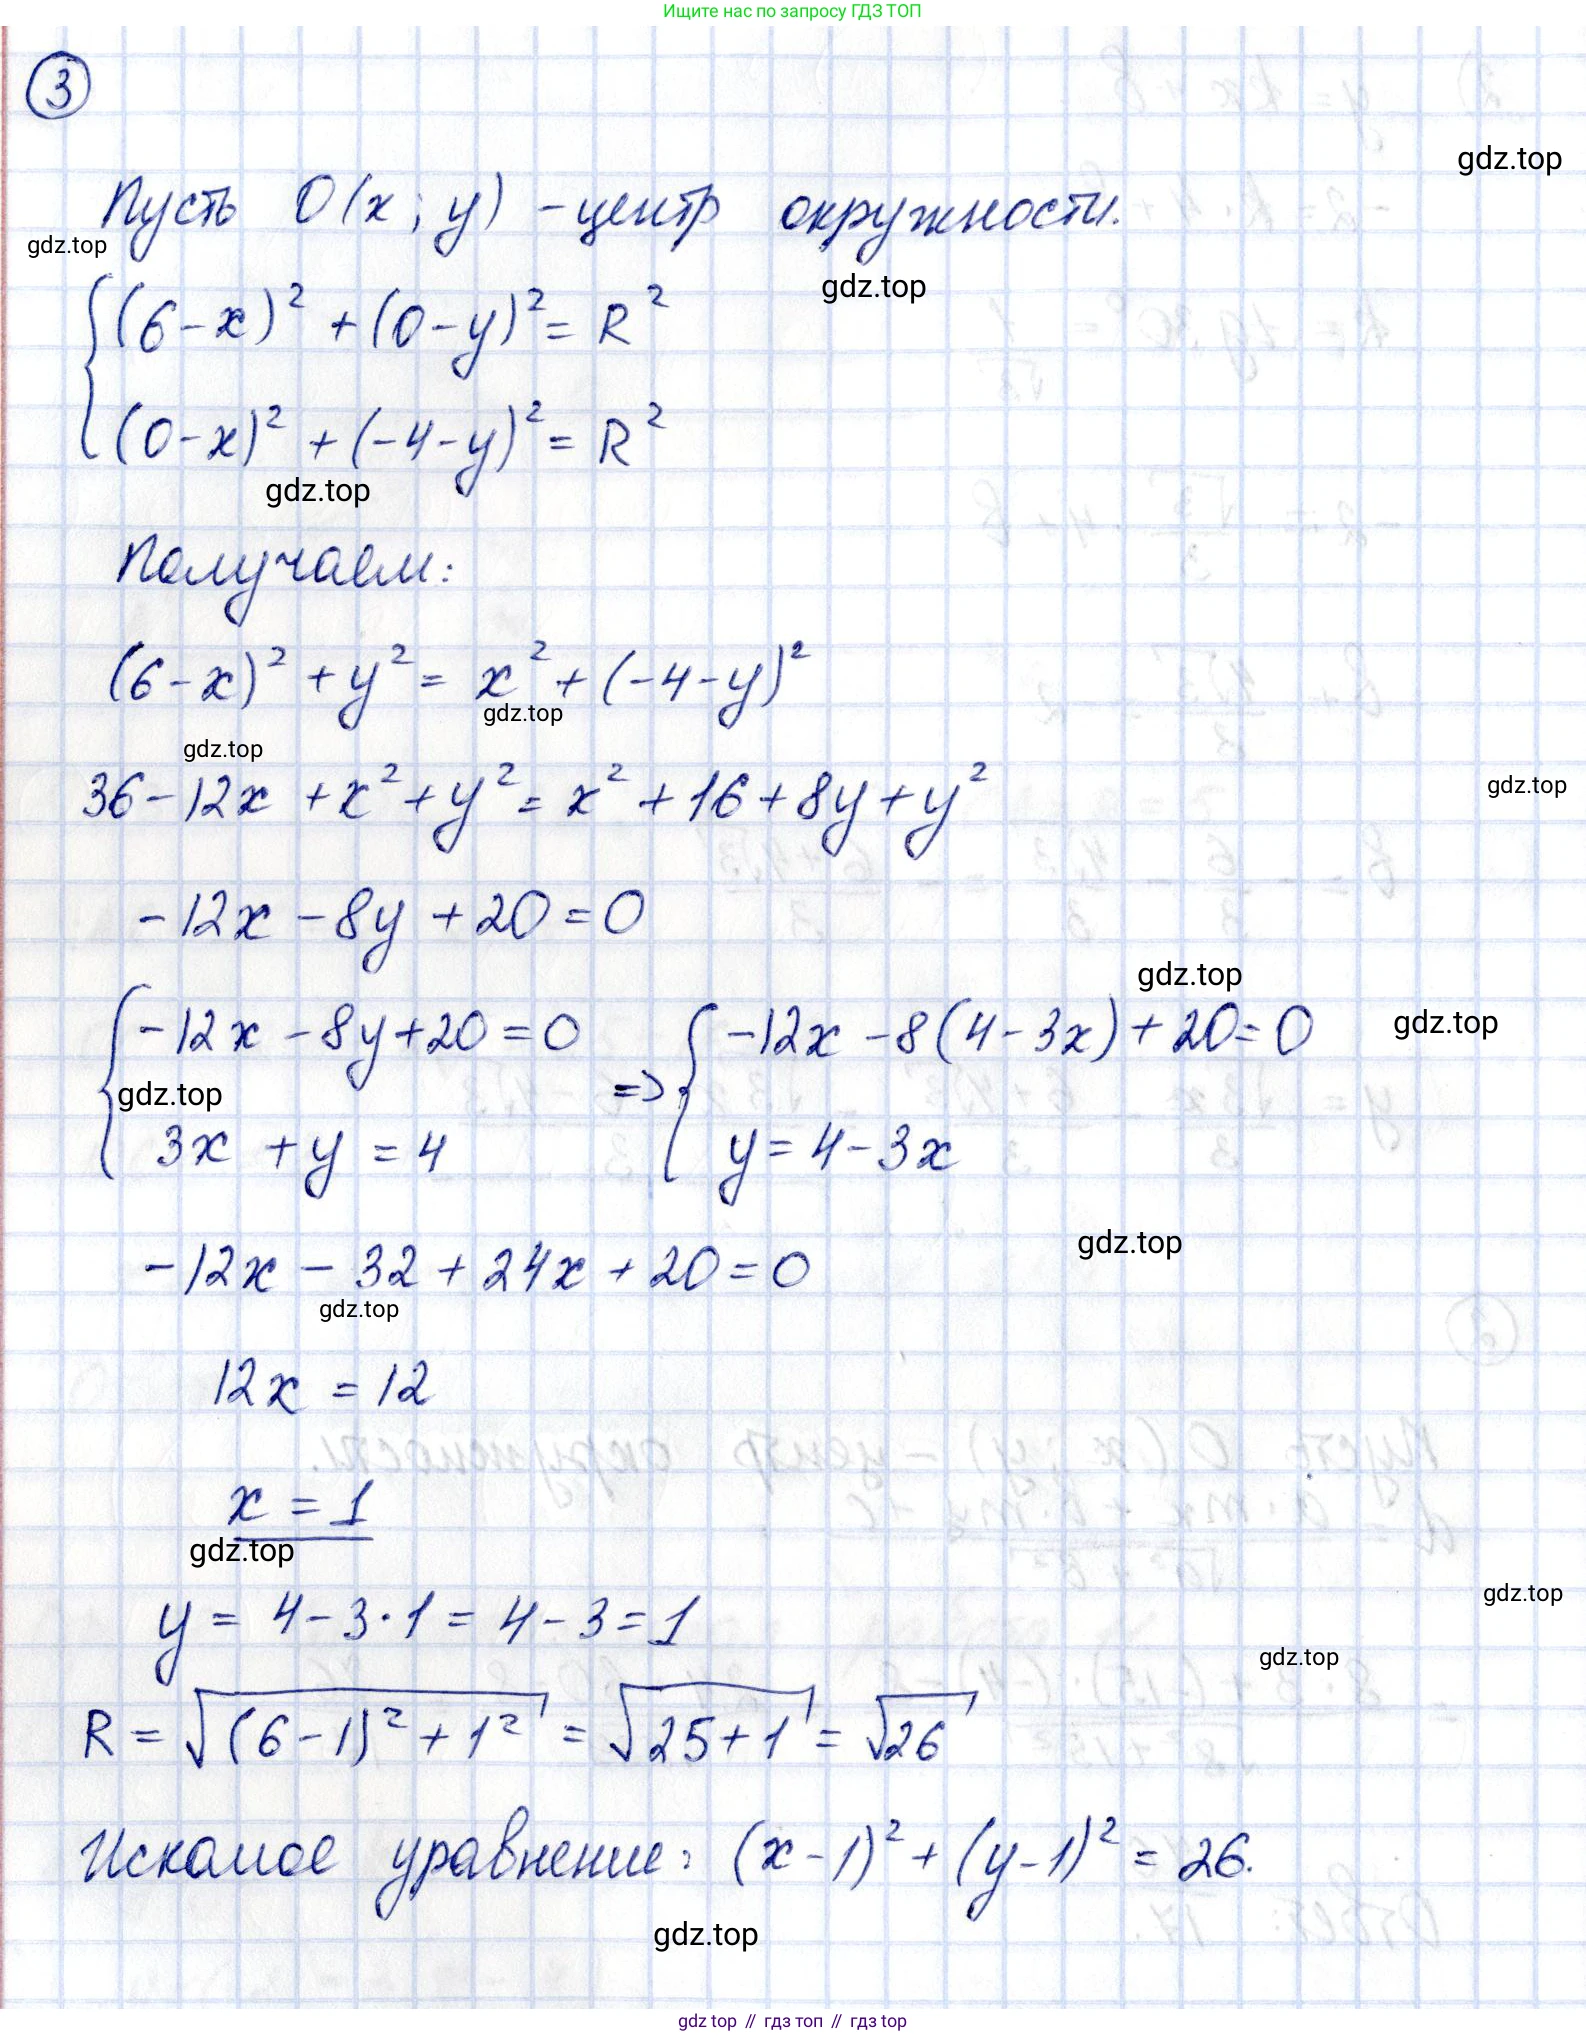 Ищите нас по запросу ГДЗ ТОП
3
gdz.top
Пусть O(x; y) - центр окружности.
gdz.top
gdz.top
(6-x)² + (0-y)² = R²
(0-x)² + (-4-y)² = R²
gdz.top
Получаем:
(6-x)² + y² = x² + (-4-y)²
gdz.top
gdz.top
36 - 12x + x² + y² = x² + 16 + 8y + y²
gdz.top
-12x - 8y + 20 = 0
gdz.top
{ -12x - 8y + 20 = 0 => { -12x - 8(4 - 3x) + 20 = 0
gdz.top
gdz.top
3x + y = 4 y = 4 - 3x
-12x - 32 + 24x + 20 = 0
gdz.top
gdz.top
12x = 12
x = 1
gdz.top
gdz.top
y = 4 - 3·1 = 4 - 3 = 1
gdz.top
R = √((6-1)² + 1²) = √(25+1) = √26
Искомое уравнение: (x-1)² + (y-1)² = 26.
gdz.top
gdz top // гдз топ // gdz top